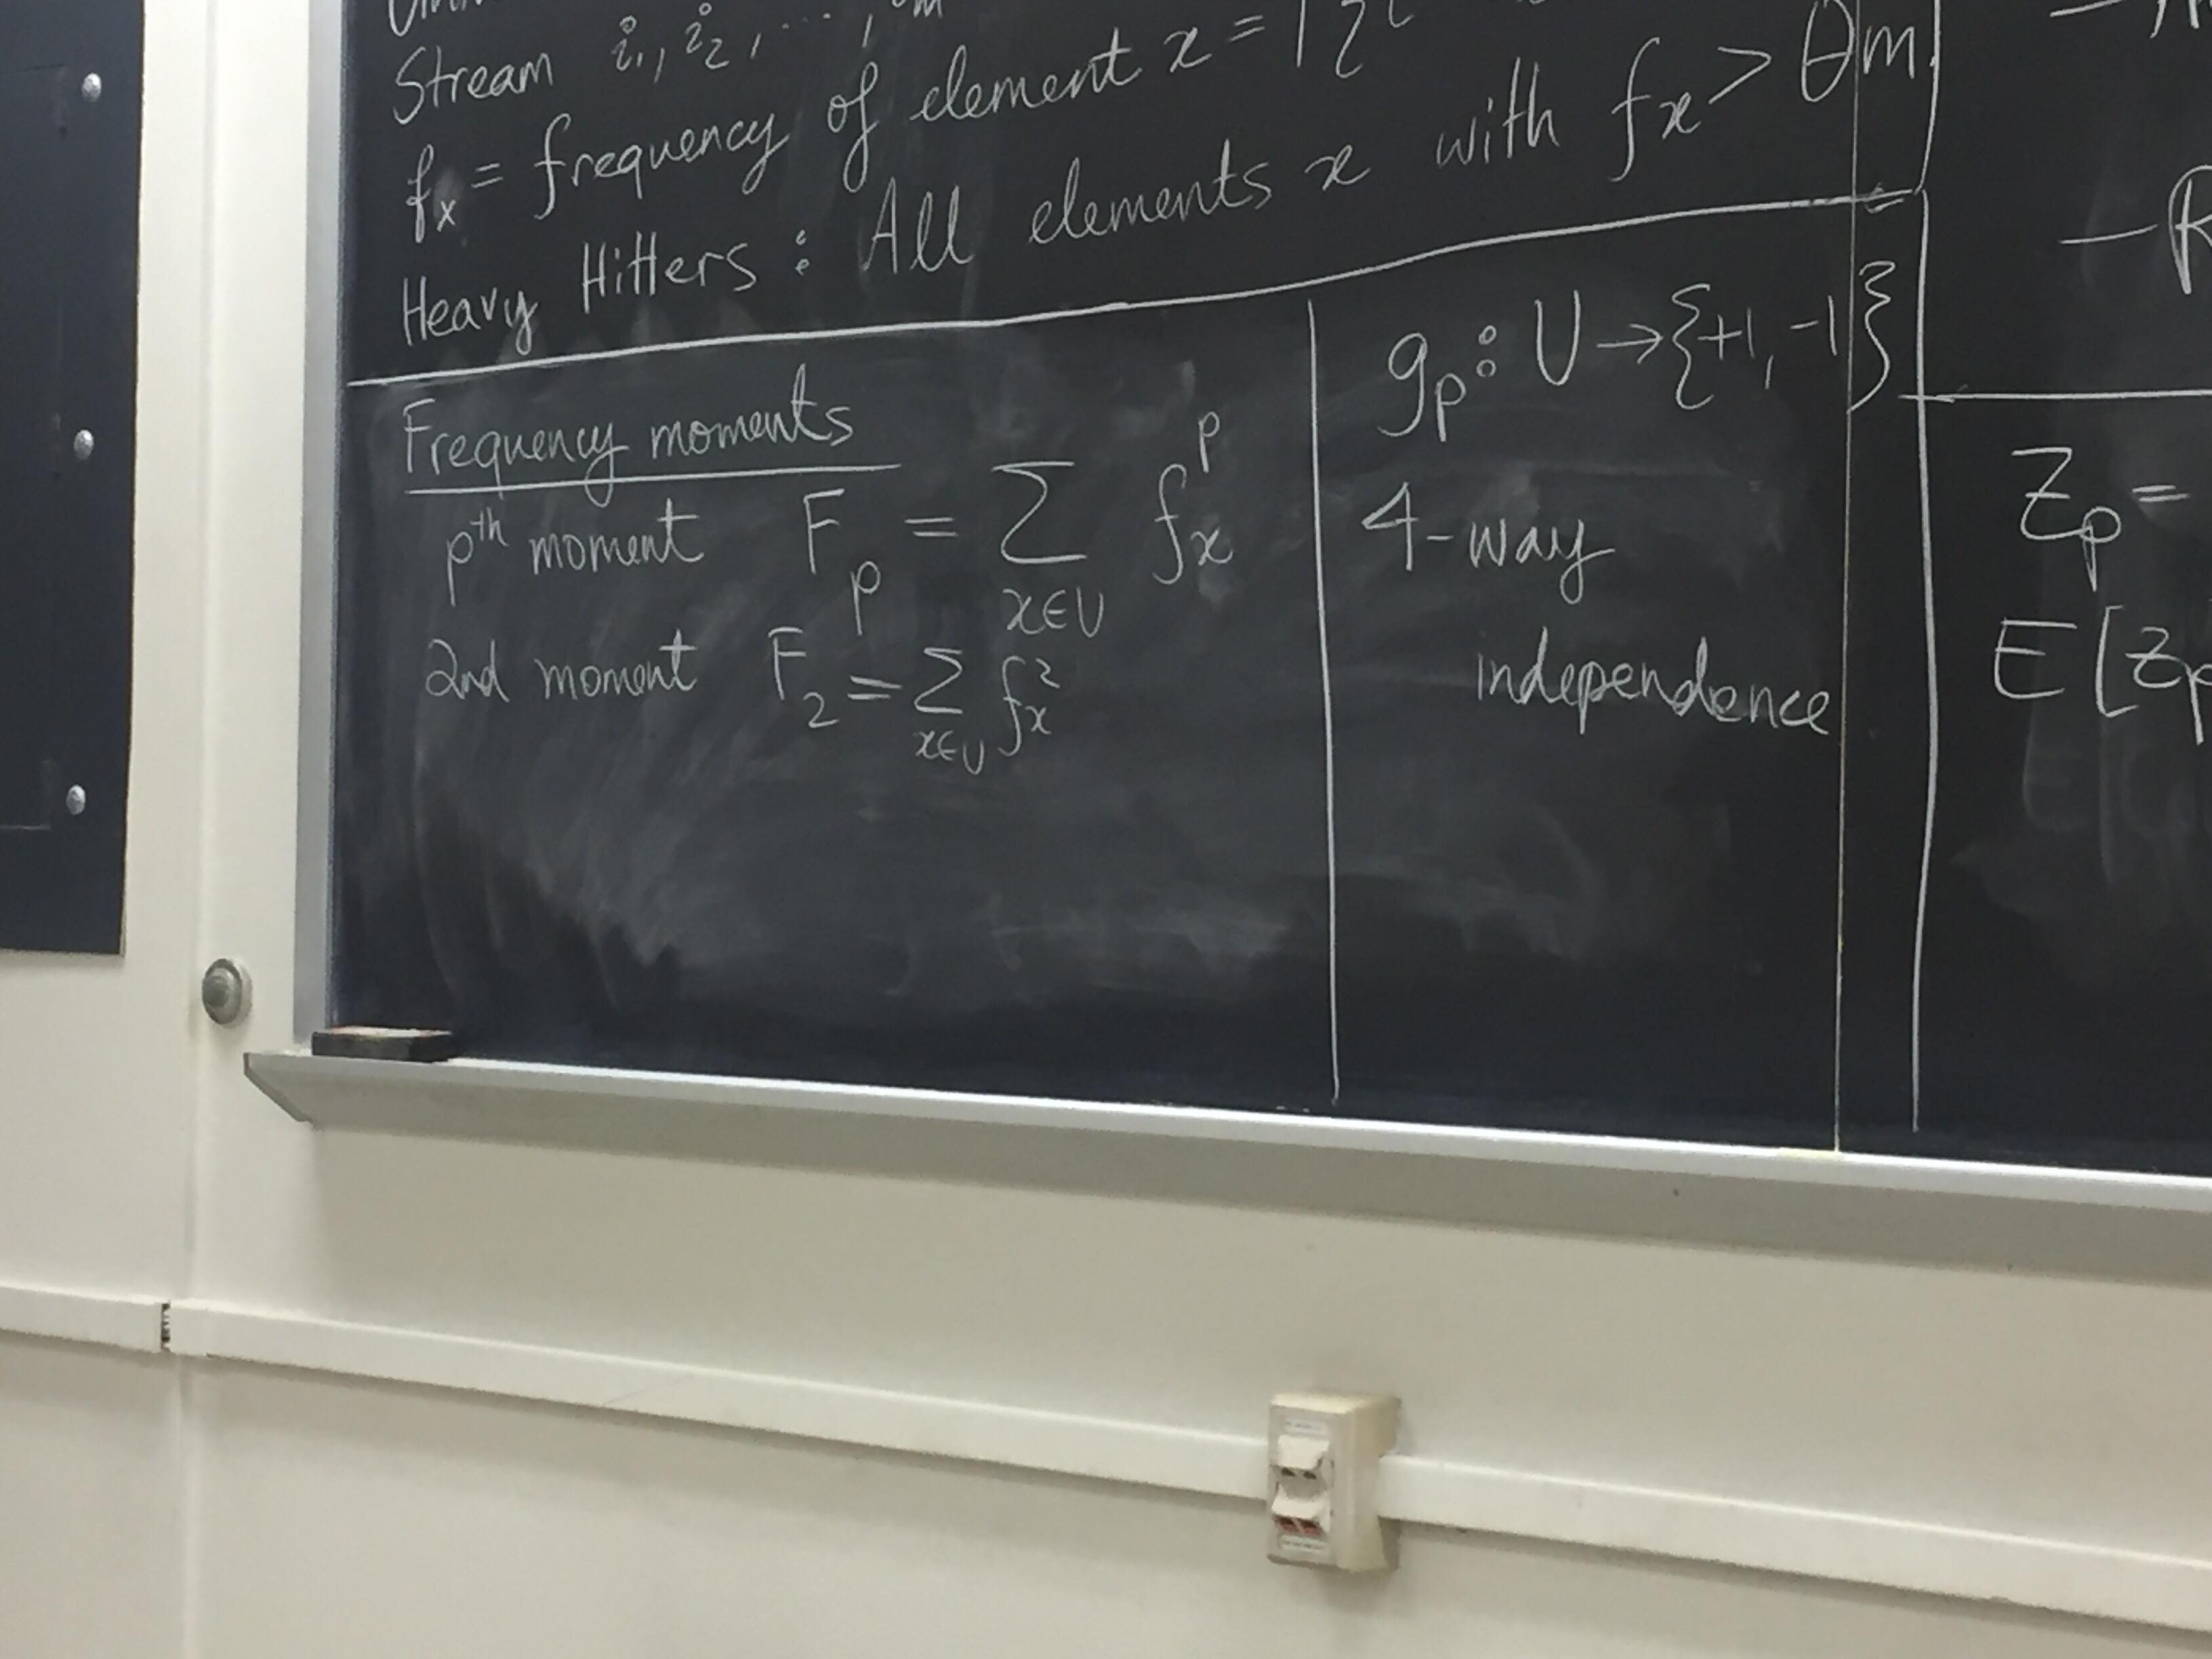 Stream i₁, i₂, ..., iₘ
fₓ = frequency of element x = |{i
Heavy Hitters : All elements x with fₓ > θm.
Frequency moments
pᵗʰ moment F_p = Σ_{x∈U} fₓᵖ
2nd moment F₂ = Σ_{x∈U} fₓ²
g_p : U → {+1, -1}
4-way
independence
- R
Z_p =
E[Z_p